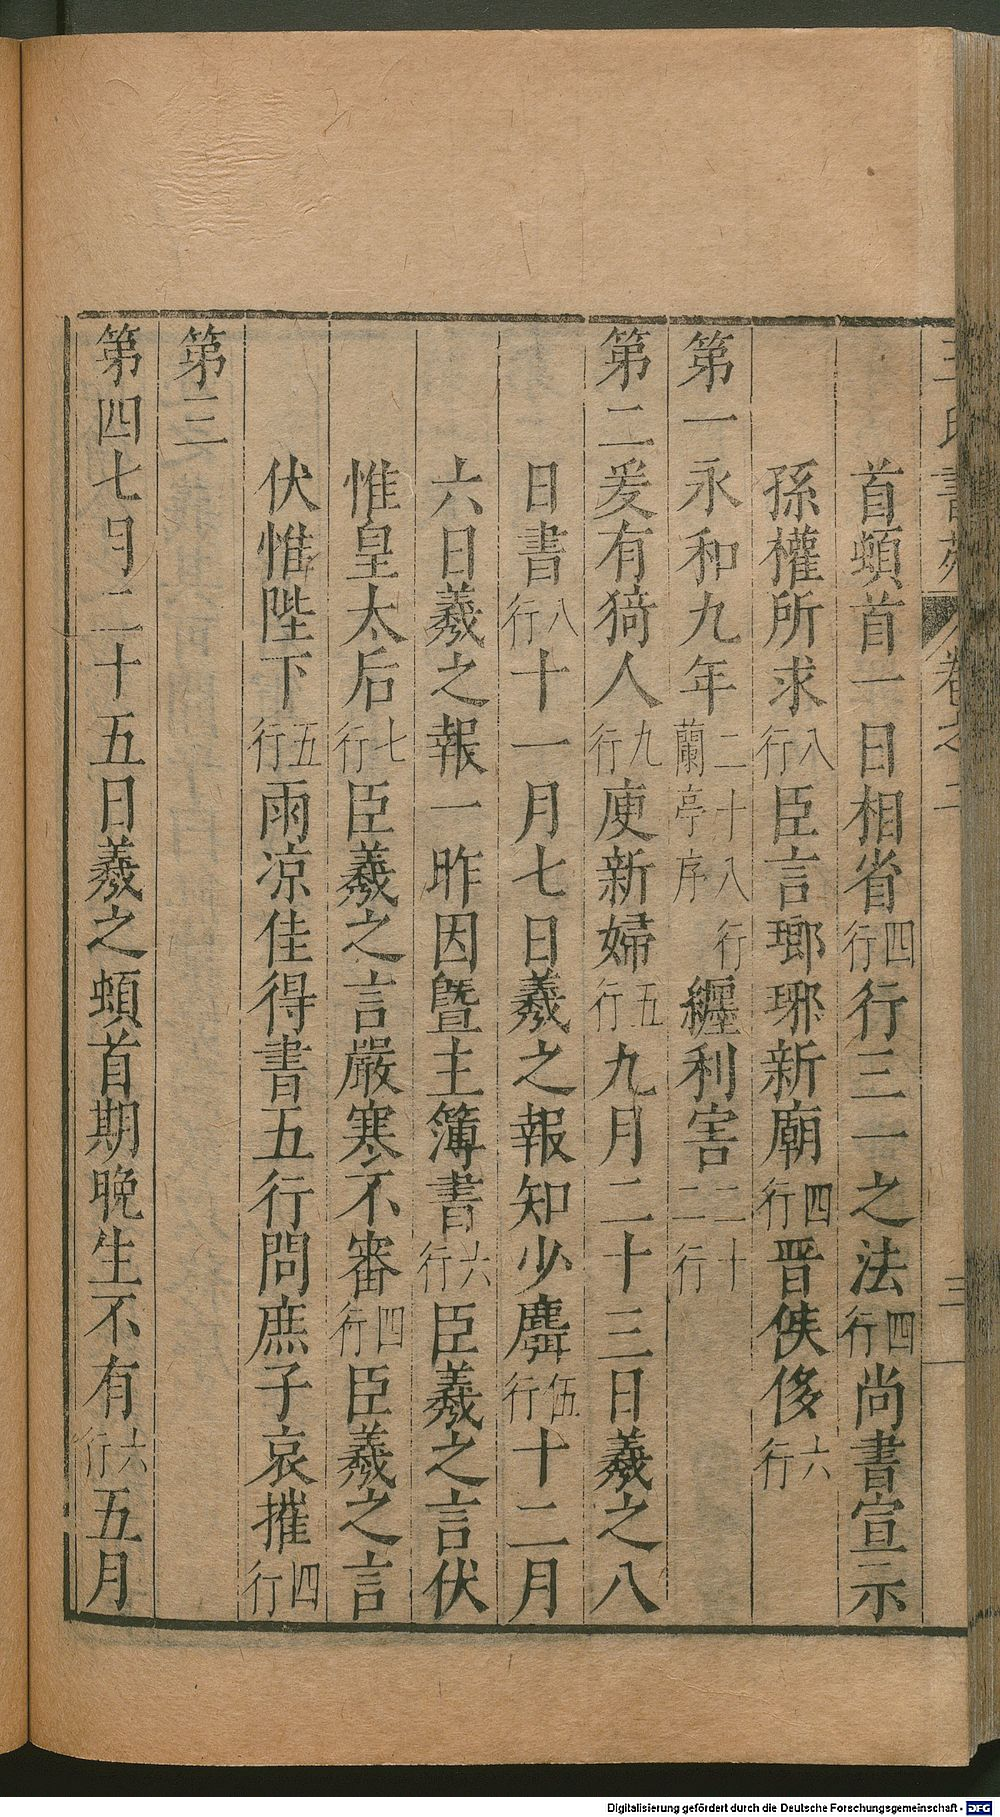 首頓首一日相省四行行三一之法四行尚書宣示
孫權所求八行臣言瑯琊新廟四行晋侠侈六行
第一永和九年二十八行蘭亭序纏利害二十二行
第二爰有猗人九行庾新婦五行九月二十三日羲之八
日書八行十一月七日羲之報知少麝伍行十二月
六日羲之報一昨因暨主簿書六行臣羲之言伏
惟皇太后七行臣羲之言嚴寒不審四行臣羲之言
伏惟陛下五行雨凉佳得書五行問庶子哀摧四行
第三
第四七月二十五日羲之頓首期晚生不有六行五月
書苑 卷之二
三
Digitalisierung gefördert durch die Deutsche Forschungsgemeinschaft - DFG